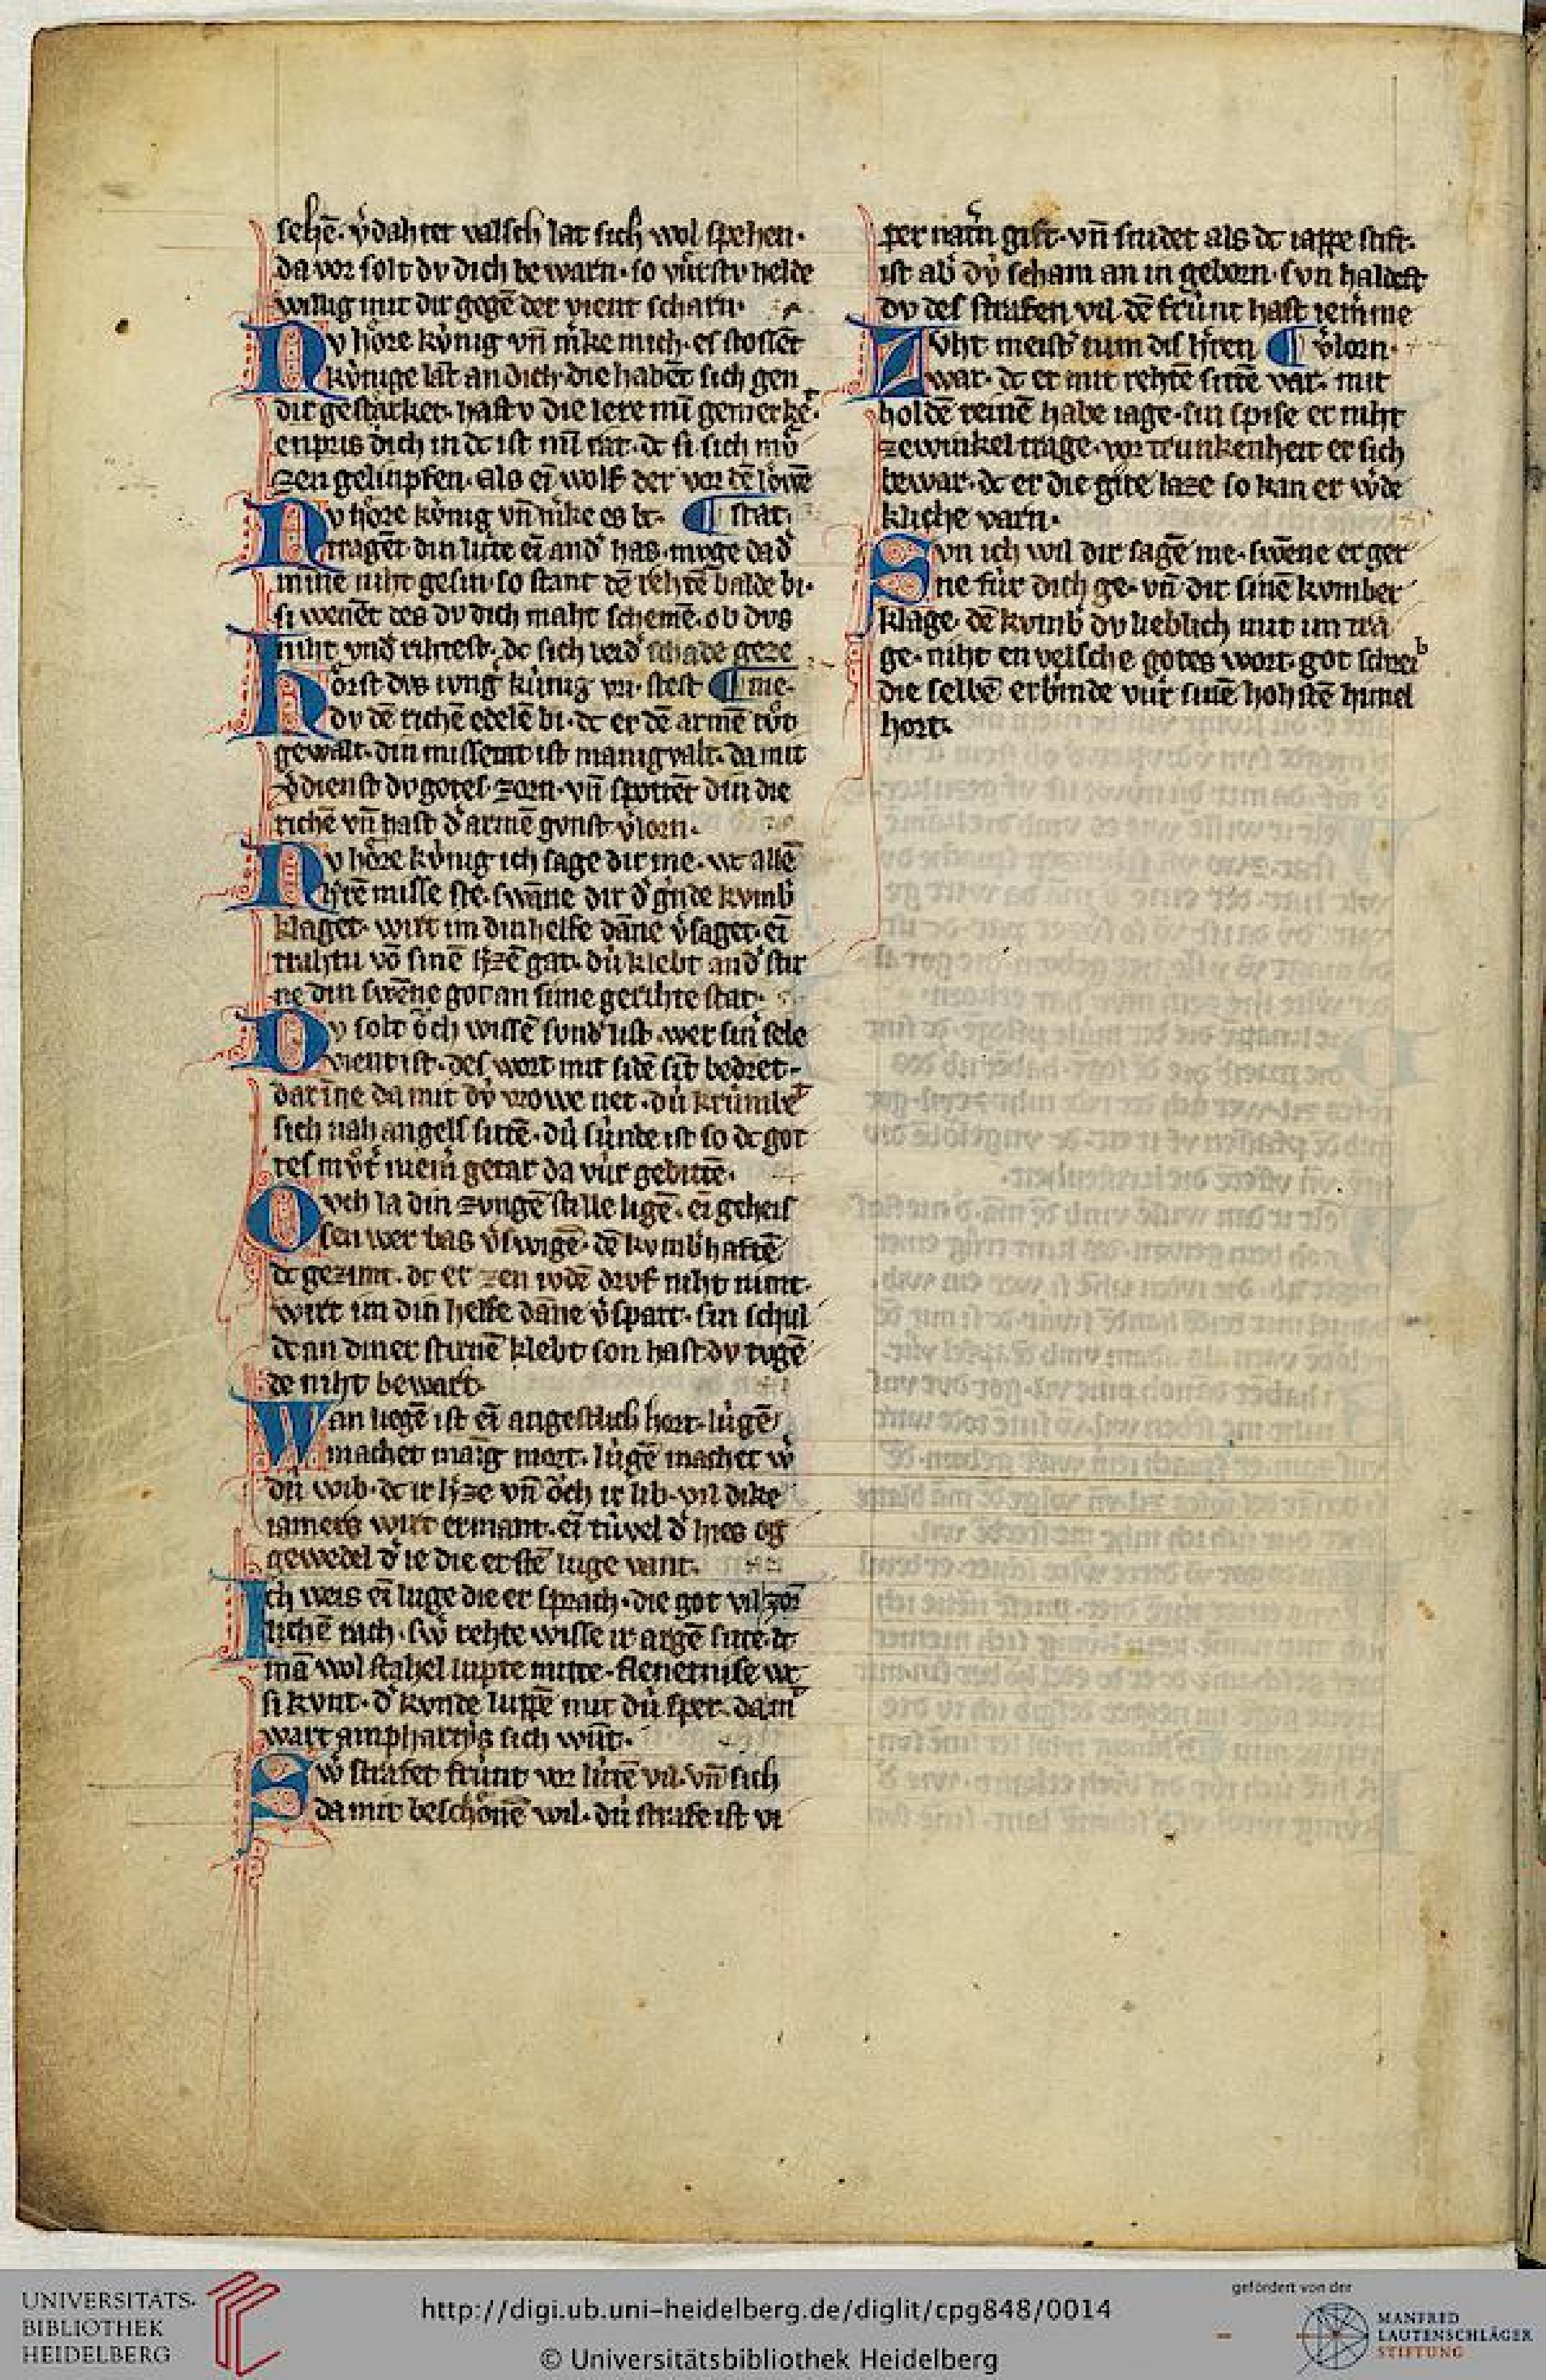 sehē. v̓dahter valsch lat sich wol spehen.
da vor solt dv dich bewarn. so vu̍rstv helde
willig mit dir gegē der vient scharn.
Nv ho̍re ku̍nig vn̄ m̓ke mich. es stossēt
ku̍nige lāt an dich. die habēt sich gen
dir gesterket. hastv die lere mī gemerket.
enpris dich in dc ist mī rat. dc si sich mv̍
zen gelinpfen. als eī wolf der vor dē lo̍wē
¶ stat.
Nv ho̍re ku̍nig vn̄ m̓ke es bc.
tragēt din lu̍te eī and̓ has. mvge da d̓
mīne niht gesin. so stant dē rehtē balde bi.
si wenēt des dv dich maht schemē. ob dvs
niht vnd̓ rihtest. dc sich beid̓ schade geze
¶ me.
ho̍rst dvs ivng ku̍nig vn̄ stest
dv dē richē edelē bi. dc er dē armē tv̍t
gewalt. din missetat ist manigvalt. da mit
v̓dienst dv gotes zorn. vn̄ spottēt din die
richē vn̄ hast d̓ armē gvnst v̓lorn.
Nv ho̍re ku̍nig ich sage dir me. wc allē
h̓rē misse ste. swāne dir d̓ gn̓de kvmb̓
klaget. wirt im din helfe dāne v̓saget. eī
trahtu vō sinē h̓zē gat. du̍ klebt and̓ stir
ne din swēne got an sime gerihte stat.
Dv solt o̍ch wissē sund̓ list. wer sin sele
vient ist. des wort mit sidē sīt bedret.
dar īne da mit dv̍ vrowe net. du̍ kru̍mbet
sich nah angels sittē. du̍ su̍nde ist so dc got
tes mv̍t̓ niem̓ getar da vu̍r gebittē.
Ovch la din zvngē stille ligē. eī geheis
sen wer bas v̓swigē. dē kvmb̓haftē
dc gezimt. dc er zen wdē drvf niht nimt.
wirt im din helfe dāne v̓spart. sin schul
dc an diner stirnē klebt son hast dv tvgē
de niht bewart.
Wan liegē ist eī angestlich hort. lu̍gē
machet maīg mort. lu̍gē machet w̓
du̍ wib. dc ir h̓ze vn̄ o̍ch ir lib. vil dike
iamers wirt ermant. eī tu̍vel d̓ hies og
gewedel d̓ ie die erstē luge vant.
Ich weis eī luge die er sprach. die got vil zor
lichē rach. sw̓ rehte wisse ir argē site. dc
mā wol stahel lupte mitte. slenetnise wc
si kvnt. d̓ kvnde luppē mit du̍ sper. da mit
wart amphartys sich wūt.
Sw̓ strafet fru̍nt vor lu̍tē vil. vn̄ sich
da mit bescho̍nē wil. du̍ strafe ist vi
per nat̓n gift. vn̄ snidet als dc tappe stift.
ist ab̓ dv̍ scham an in geborn. svn haldest
dv des strafen vil dē fru̍nt hast iem̓me
¶ v̓lorn.
Zvht meist̓ tum dis h̓ren
war. dc er mit rehtē sittē var. mit
holdē reinē habe iage. sin spise er niht
ze winkel trage. vor trunkenheit er sich
bewar. dc er die gite laze so kan er w̓de
kliche varn.
Svn ich wil dir sagē me. swēne er ger
ne fu̍r dich ge. vn̄ dir sinē kvmber
klage. dē kvmb̓ dv lieblich mit im tra
ge. niht en velsche gotes wort. got schreib
die selbē erbīnde vu̍r sinē hohstē himel
hort.
UNIVERSITÄTS-
BIBLIOTHEK
HEIDELBERG
http://digi.ub.uni-heidelberg.de/diglit/cpg848/0014
© Universitätsbibliothek Heidelberg
gefördert von der
MANFRED
LAUTENSCHLÄGER
STIFTUNG